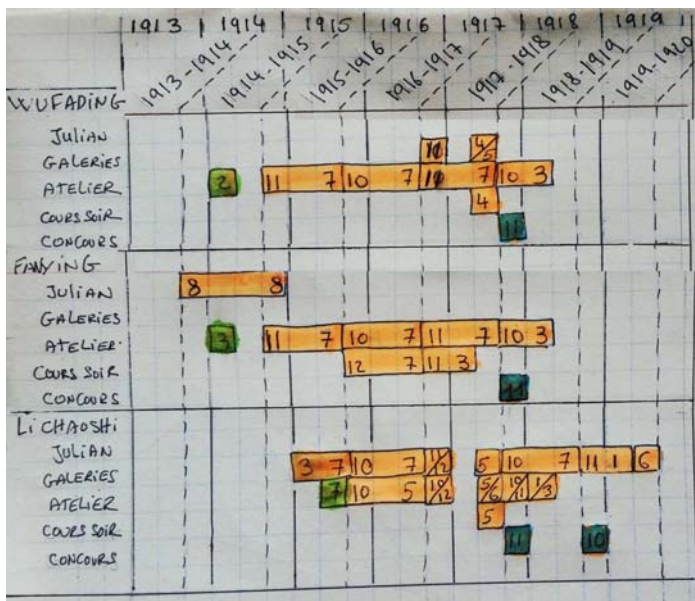 1913 1914 1915 1916 1917 1918 1919
1913-1914 1914-1915 1915-1916 1916-1917 1917-1918 1918-1919 1919-1920
WUFADING
JULIAN 4/5
GALERIES
ATELIER 2 11 7 10 7 7 10 3
COURS SOIR 4
CONCOURS 11
FANYING
JULIAN 8 8
GALERIES
ATELIER 3 11 7 10 7 11 7 10 3
COURS SOIR 12 7 11 3
CONCOURS 11
LI CHAOSHI
JULIAN 3 7 10 7 11/12 5 10 7 11 1 6
GALERIES 7 10 5 10/12 5/6 10/1 1/3
ATELIER
COURS SOIR 5
CONCOURS 11 10